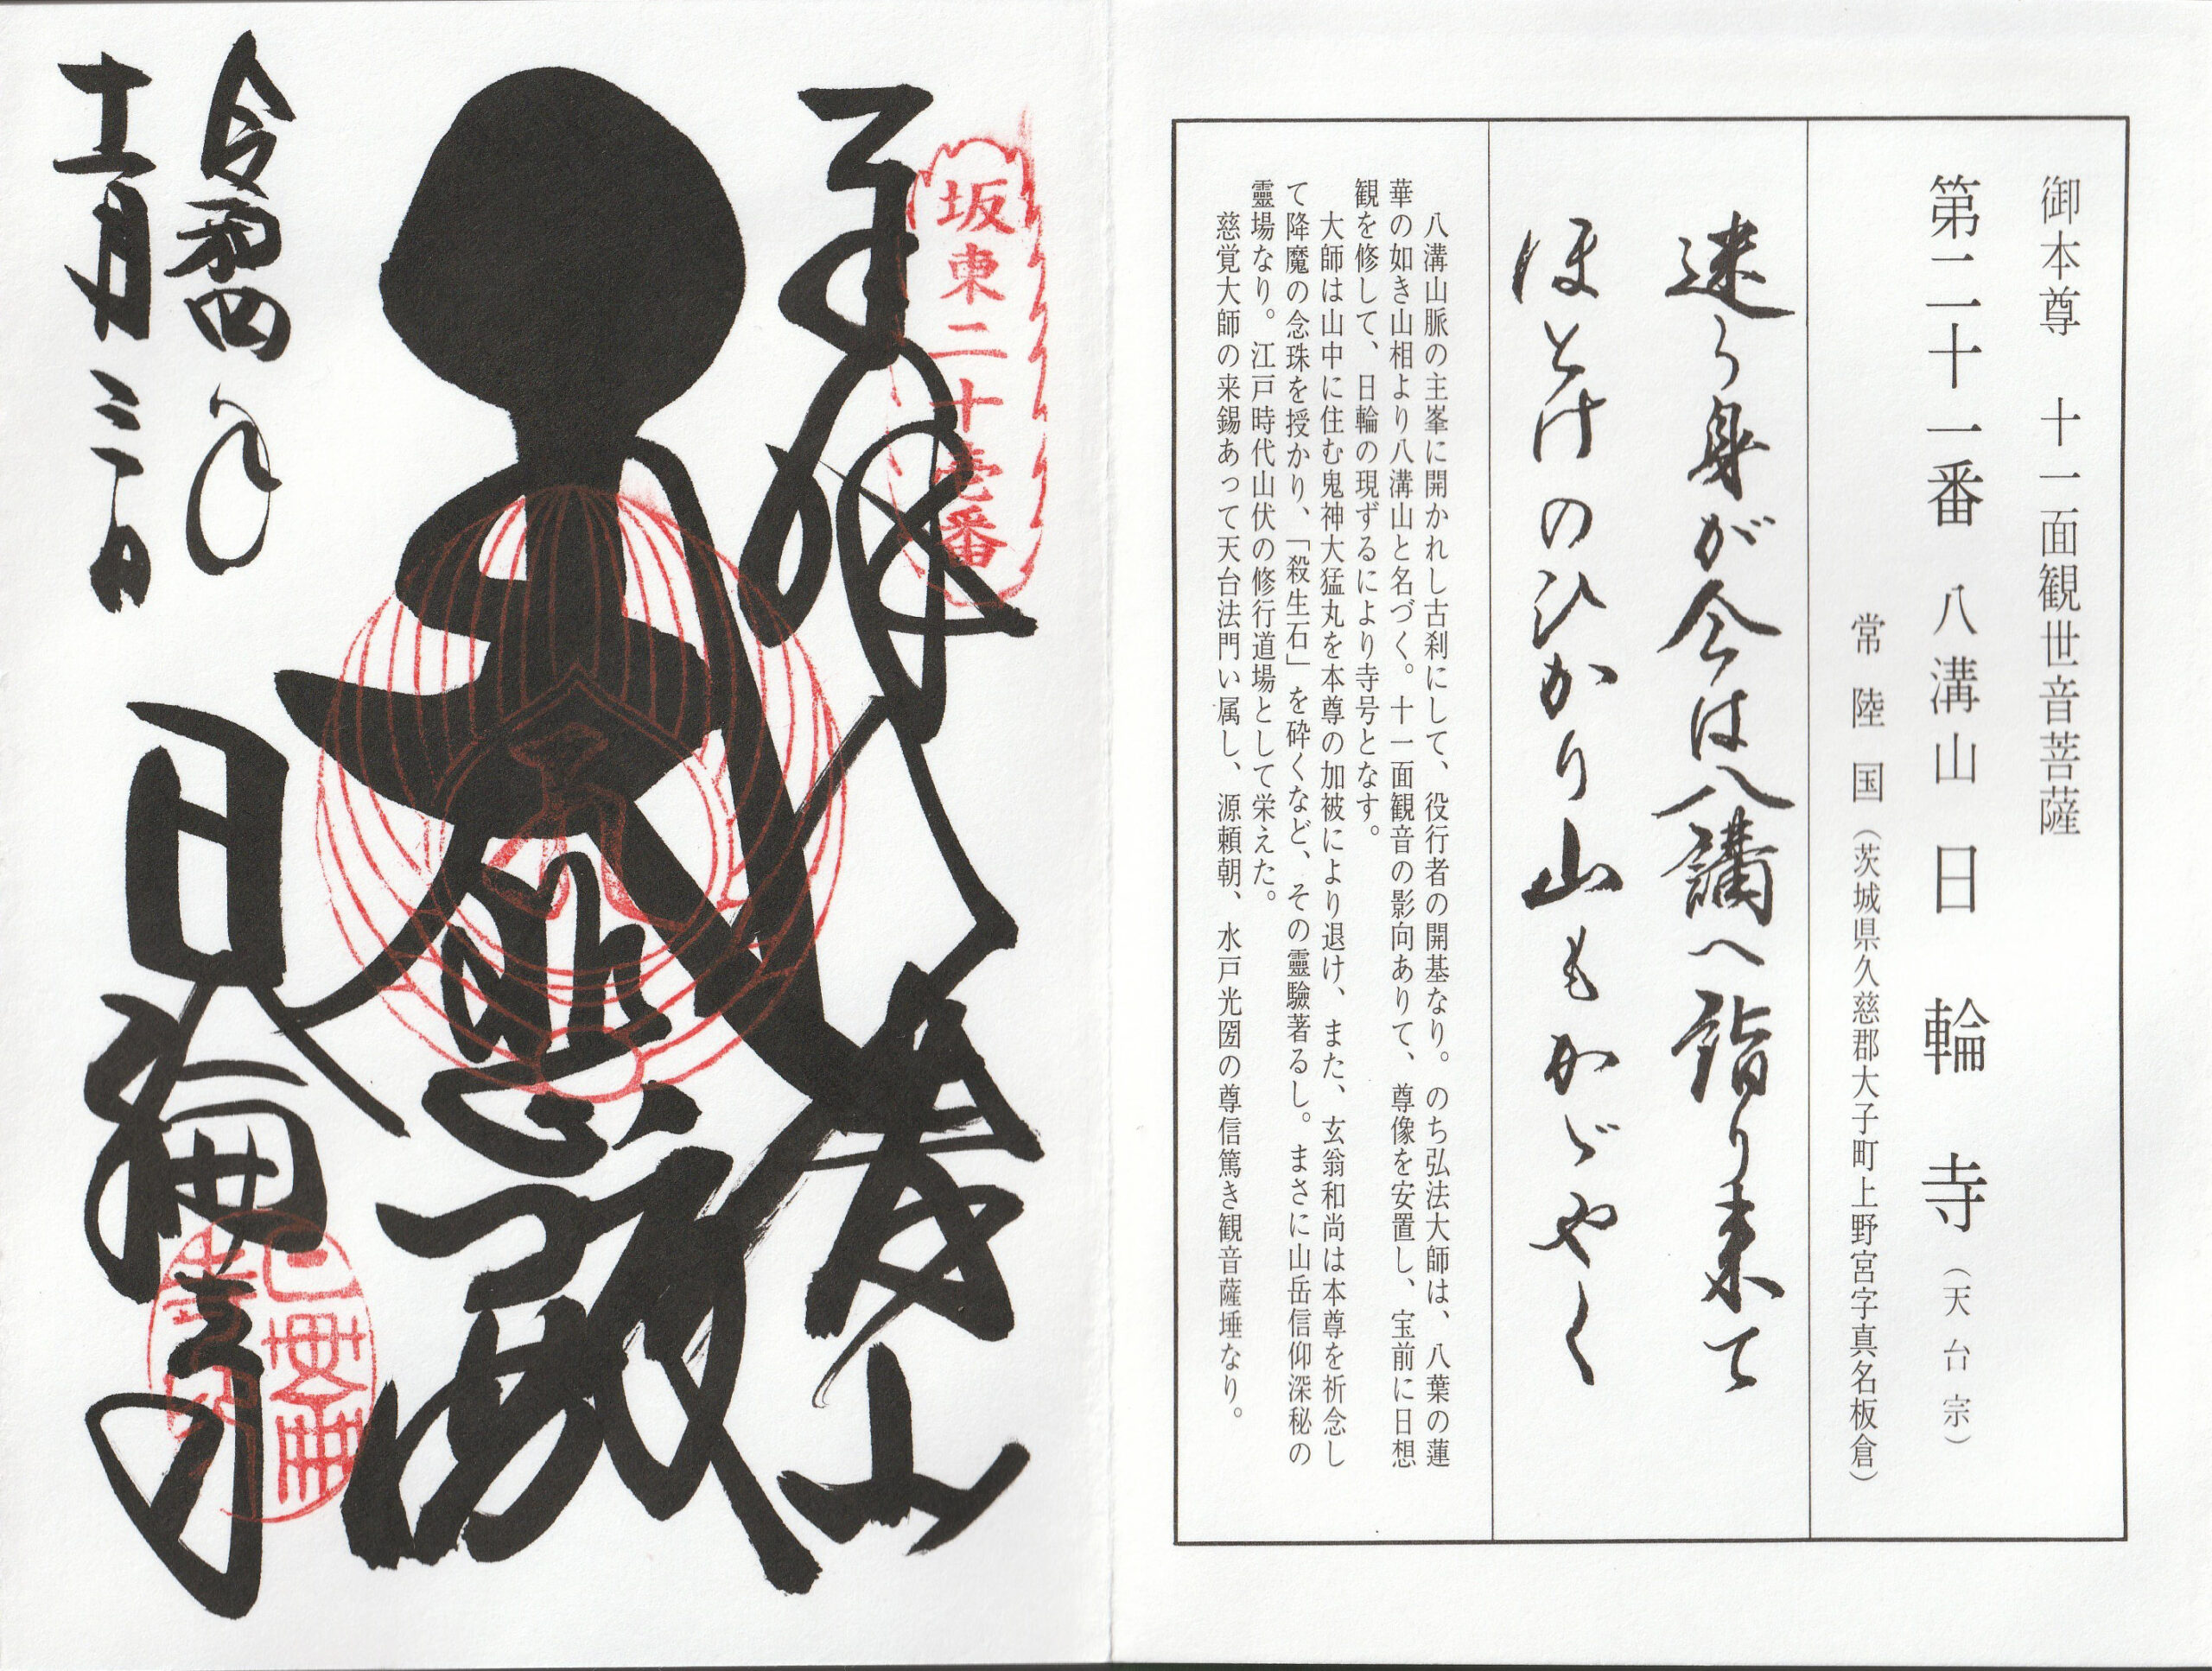 御本尊　十一面観世音菩薩
第二十一番　八溝山　日輪寺（天台宗）
常陸国（茨城県久慈郡大子町上野宮字真名板倉）
迷う身が今は八溝へ詣り来て
ほとけのひかり山もかゞやく
八溝山脈の主峯に開かれし古刹にして、役行者の開基なり。のち弘法大師は、八葉の蓮
華の如き山相より八溝山と名づく。十一面観音の影向ありて、尊像を安置し、宝前に日想
観を修して、日輪の現ずるにより寺号となす。
大師は山中に住む鬼神大猛丸を本尊の加被により退け、また、玄翁和尚は本尊を祈念し
て降魔の念珠を授かり、「殺生石」を砕くなど、その靈驗著るし。まさに山岳信仰深秘の
靈場なり。江戸時代山伏の修行道場として栄えた。
慈覚大師の来錫あって天台法門い属し、源頼朝、水戸光圀の尊信篤き観音薩埵なり。
坂東二十壱番
奉拝　八溝山
大悲殿
令和四年
十二月三日
日輪寺